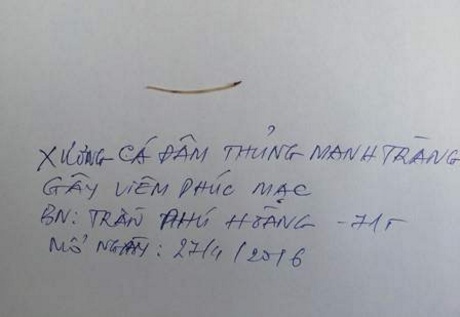 XƯƠNG CÁ ĐÂM THỦNG MANH TRÀNG
GÂY VIÊM PHÚC MẠC
BN: TRẦN PHÚ HOÀNG - 71T
MỔ NGÀY: 27/4/2016